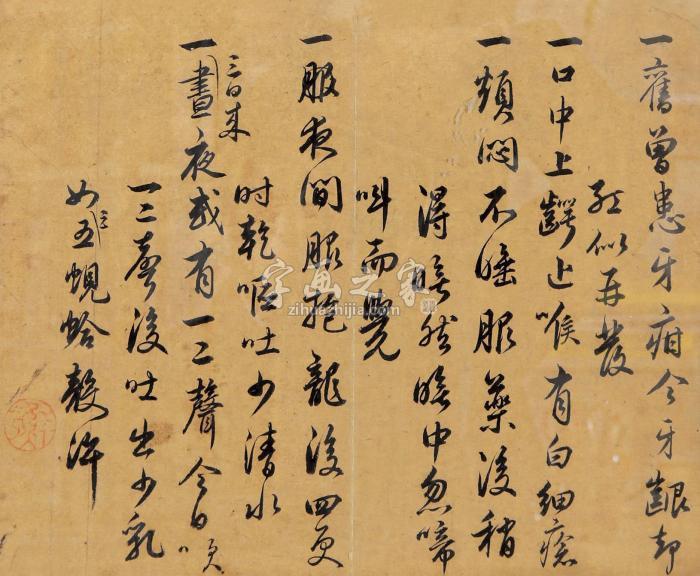 一舊曾患牙疳今牙齦却
紅似再發
一口中上齶近喉有白細瘡
一煩悶不睡服藥後稍
得睡然睡中忽啼
叫而覺
一服夜間服抱龍後四更
时乾嘔吐少清水
三日来
一晝夜或有一二聲今日
一二聲後吐出少乳
如五蜆蛤殼许
字画之家
zihuazhijia.com